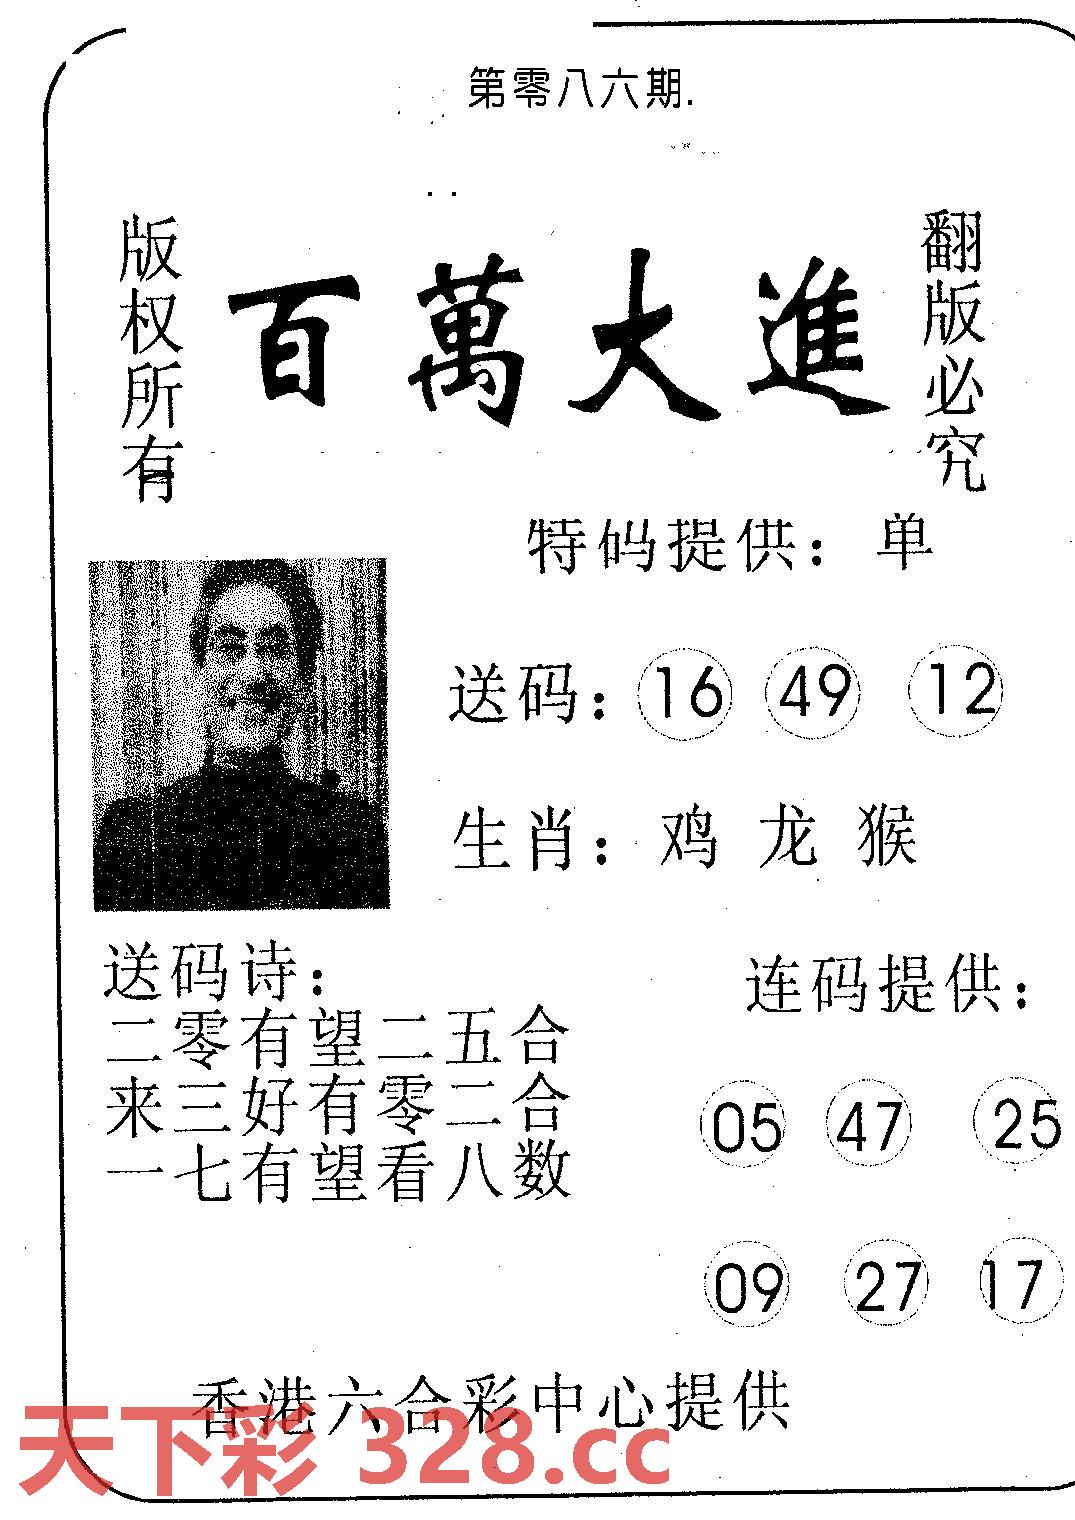 第零八六期.
版权所有
百萬大進
翻版必究
特码提供：单
送码：16 49 12
生肖：鸡 龙 猴
送码诗：
二零有望二五合
来三好有零二合
一七有望看八数
连码提供：
05 47 25
09 27 17
香港六合彩中心提供
天下彩 328.cc